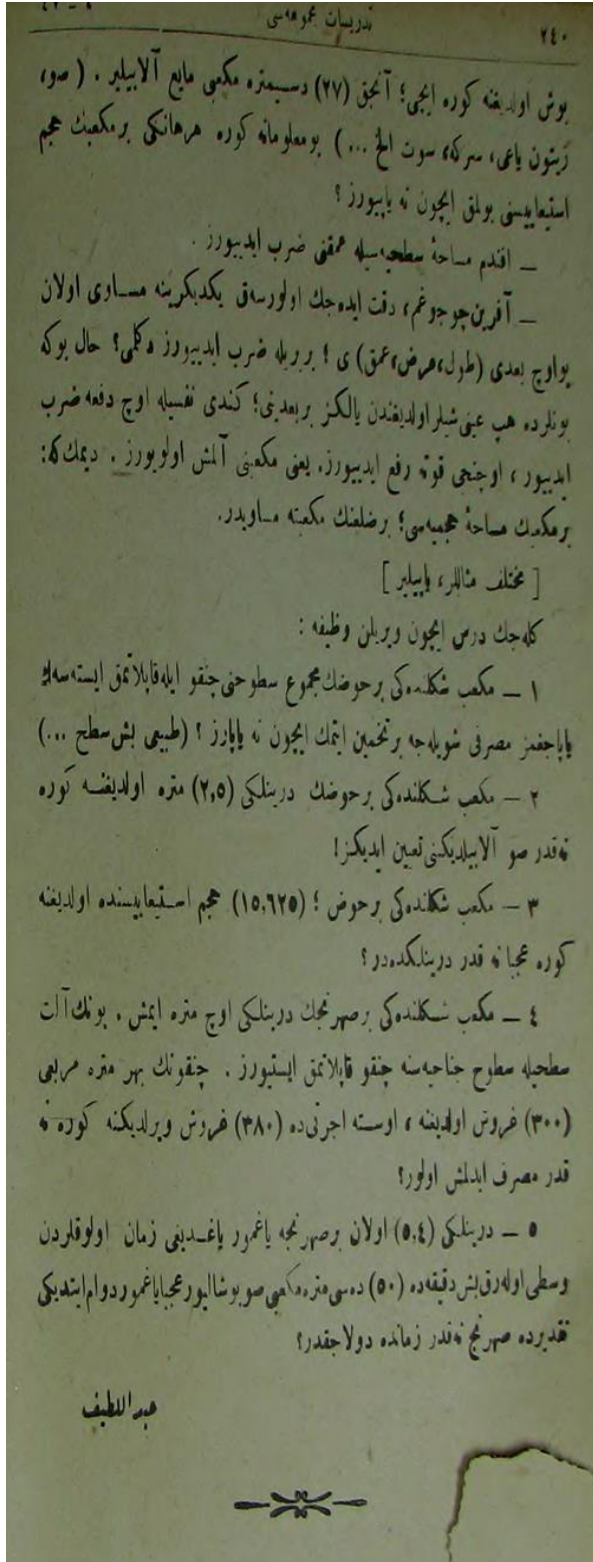 ٢٤٠ تدريسات مجموعه‌سی
بوش اولديغنه كوره ايچی؛ آنجق (٢٧) دسيمتره مكعبی مايع آلابيلير . ( صو،
زيتون ياغی، سركه، سوت الخ ... ) بومعلوماته كوره هرهانكی برمكعبك حجم
استيعابيسنی بولمق ايچون نه ياپييورز ؟
ــ افندم مساحهٔ سطحيه‌سيله عمقنی ضرب ايدييورز .
ــ آفرين چوجوغم، دقت ايده‌جك اولورسه‌ق يكديكرينه مساوی اولان
بواوچ بعدی (طول،عرض،عمق) ی ؛ بربريله ضرب ايدييورز دكلمی؟ حال بوكه
بونلرده هپ عينی شيلر اولديغندن يالكز بربعدينی؛ كندی نفسيله اوچ دفعه ضرب
ايدييور ، اوچنجی قوته رفع ايدييورز. يعنی مكعبنی آلمش اولويورز . ديمك كه:
برمكعبك مساحهٔ حجميه‌سی؛ برضلعنك مكعبنه مساويدر.
[ مختلف مثاللر، ياپيلير ]
كله‌جك درس ايچون ويريلن وظيفه :
١ ــ مكعب شكلنده‌كی برحوضك مجموع سطوحنی چنقو ايله قاپلاتمق ايسته‌سه‌ك
ياپاجغمز مصرفی شويله‌جه برتخمين ايتمك ايچون نه ياپارز ؟ (طبيعی بش سطح ...)
٢ ــ مكعب شكلنده‌كی برحوضك درينلكی (٢,٥) متره اولديغنه كوره
نه‌قدر صو آلابيلديكنی تعيين ايديكز!
٣ ــ مكعب شكلنده‌كی برحوض ؛ (١٥,٦٢٥) حجم استيعابيسنده اولديغنه
كوره عجبا نه قدر درينلكده‌در؟
٤ ــ مكعب شكلنده‌كی برصهرنجك درينلكی اوچ متره ايمش . بونك آلت
سطحيله سطوح جناحيه‌سنه چنقو قاپلاتمق ايستيورز . چنقونك بهر متره مربعی
(٣٠٠) غروش اولديغنه ، اوسته اجرتی‌ده (٣٨٠) غروش ويرلديكنه كوره نه
قدر مصرف ايدلمش اولور؟
٥ ــ درينلكی (٥,٤) اولان برصهرنجه ياغمور ياغديغی زمان اولوقلردن
وسطی اوله‌رق بش دقيقه‌ده (٥٠) ده‌سی‌متره مكعبی صو بوشاليور عجبا ياغمور دوام ايتديكی
تقديرده صهرنج نه‌قدر زمانده دولاجقدر؟
عبداللطيف